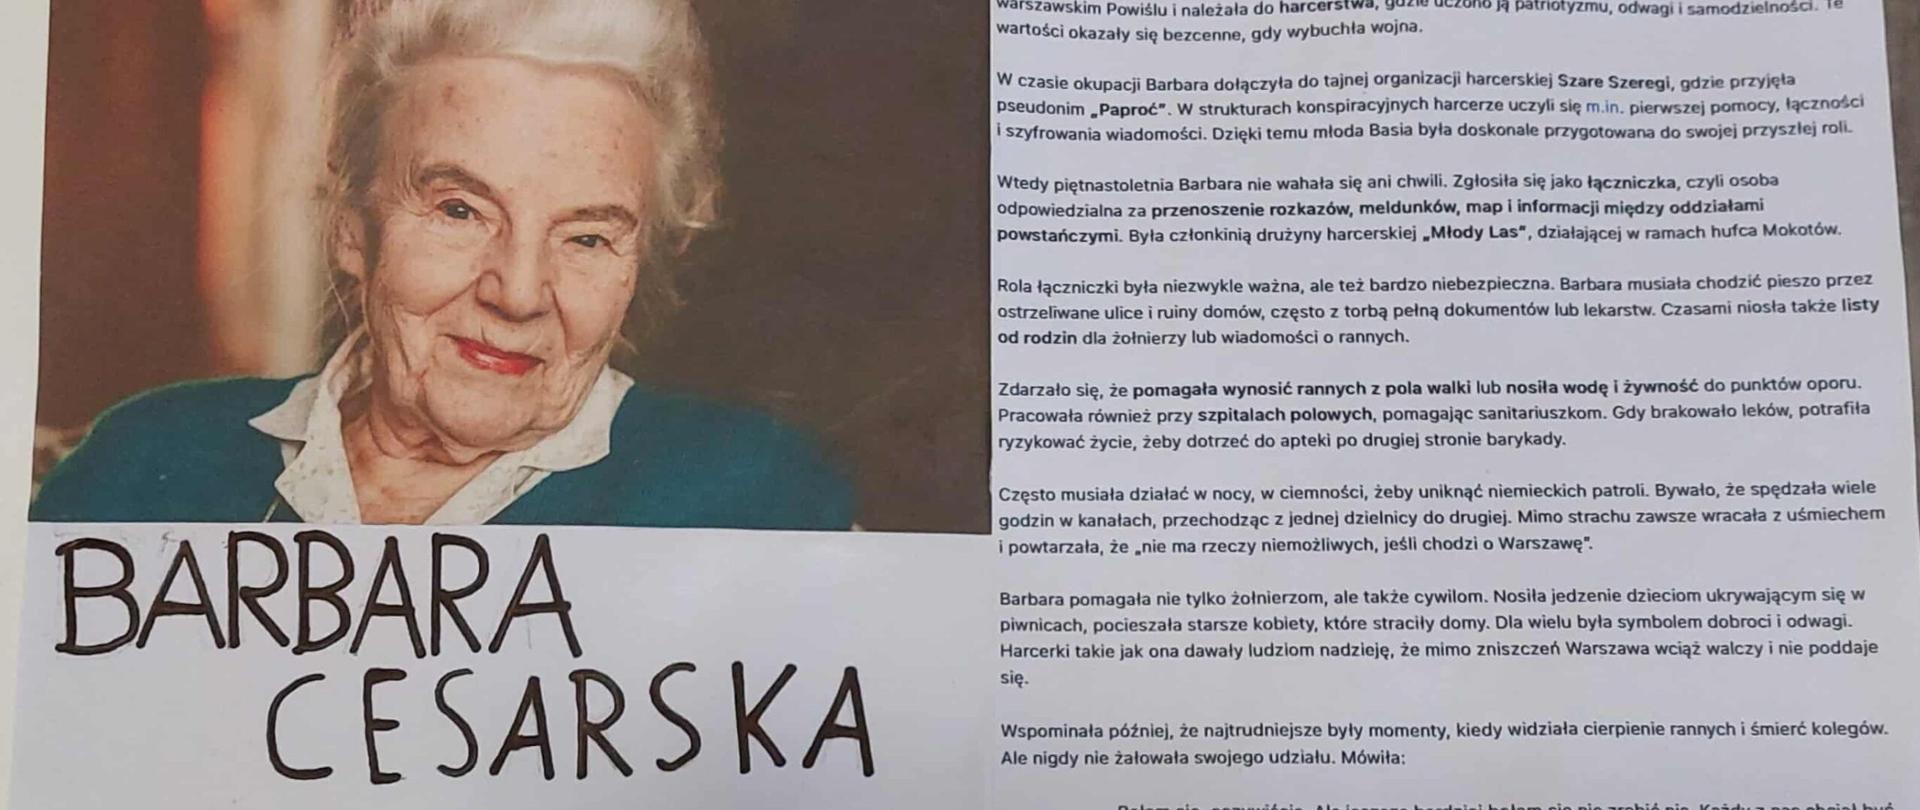 BARBARA
CESARSKA
warszawskim Powiślu i należała do harcerstwa, gdzie uczono ją patriotyzmu, odwagi i samodzielności. Te
wartości okazały się bezcenne, gdy wybuchła wojna.
W czasie okupacji Barbara dołączyła do tajnej organizacji harcerskiej Szare Szeregi, gdzie przyjęła
pseudonim „Paproć”. W strukturach konspiracyjnych harcerze uczyli się m.in. pierwszej pomocy, łączności
i szyfrowania wiadomości. Dzięki temu młoda Basia była doskonale przygotowana do swojej przyszłej roli.
Wtedy piętnastoletnia Barbara nie wahała się ani chwili. Zgłosiła się jako łączniczka, czyli osoba
odpowiedzialna za przenoszenie rozkazów, meldunków, map i informacji między oddziałami
powstańczymi. Była członkinią drużyny harcerskiej „Młody Las”, działającej w ramach hufca Mokotów.
Rola łączniczki była niezwykle ważna, ale też bardzo niebezpieczna. Barbara musiała chodzić pieszo przez
ostrzeliwane ulice i ruiny domów, często z torbą pełną dokumentów lub lekarstw. Czasami niosła także listy
od rodzin dla żołnierzy lub wiadomości o rannych.
Zdarzało się, że pomagała wynosić rannych z pola walki lub nosiła wodę i żywność do punktów oporu.
Pracowała również przy szpitalach polowych, pomagając sanitariuszkom. Gdy brakowało leków, potrafiła
ryzykować życie, żeby dotrzeć do apteki po drugiej stronie barykady.
Często musiała działać w nocy, w ciemności, żeby uniknąć niemieckich patroli. Bywało, że spędzała wiele
godzin w kanałach, przechodząc z jednej dzielnicy do drugiej. Mimo strachu zawsze wracała z uśmiechem
i powtarzała, że „nie ma rzeczy niemożliwych, jeśli chodzi o Warszawę”.
Barbara pomagała nie tylko żołnierzom, ale także cywilom. Nosiła jedzenie dzieciom ukrywającym się w
piwnicach, pocieszała starsze kobiety, które straciły domy. Dla wielu była symbolem dobroci i odwagi.
Harcerki takie jak ona dawały ludziom nadzieję, że mimo zniszczeń Warszawa wciąż walczy i nie poddaje
się.
Wspominała później, że najtrudniejsze były momenty, kiedy widziała cierpienie rannych i śmierć kolegów.
Ale nigdy nie żałowała swojego udziału. Mówiła: